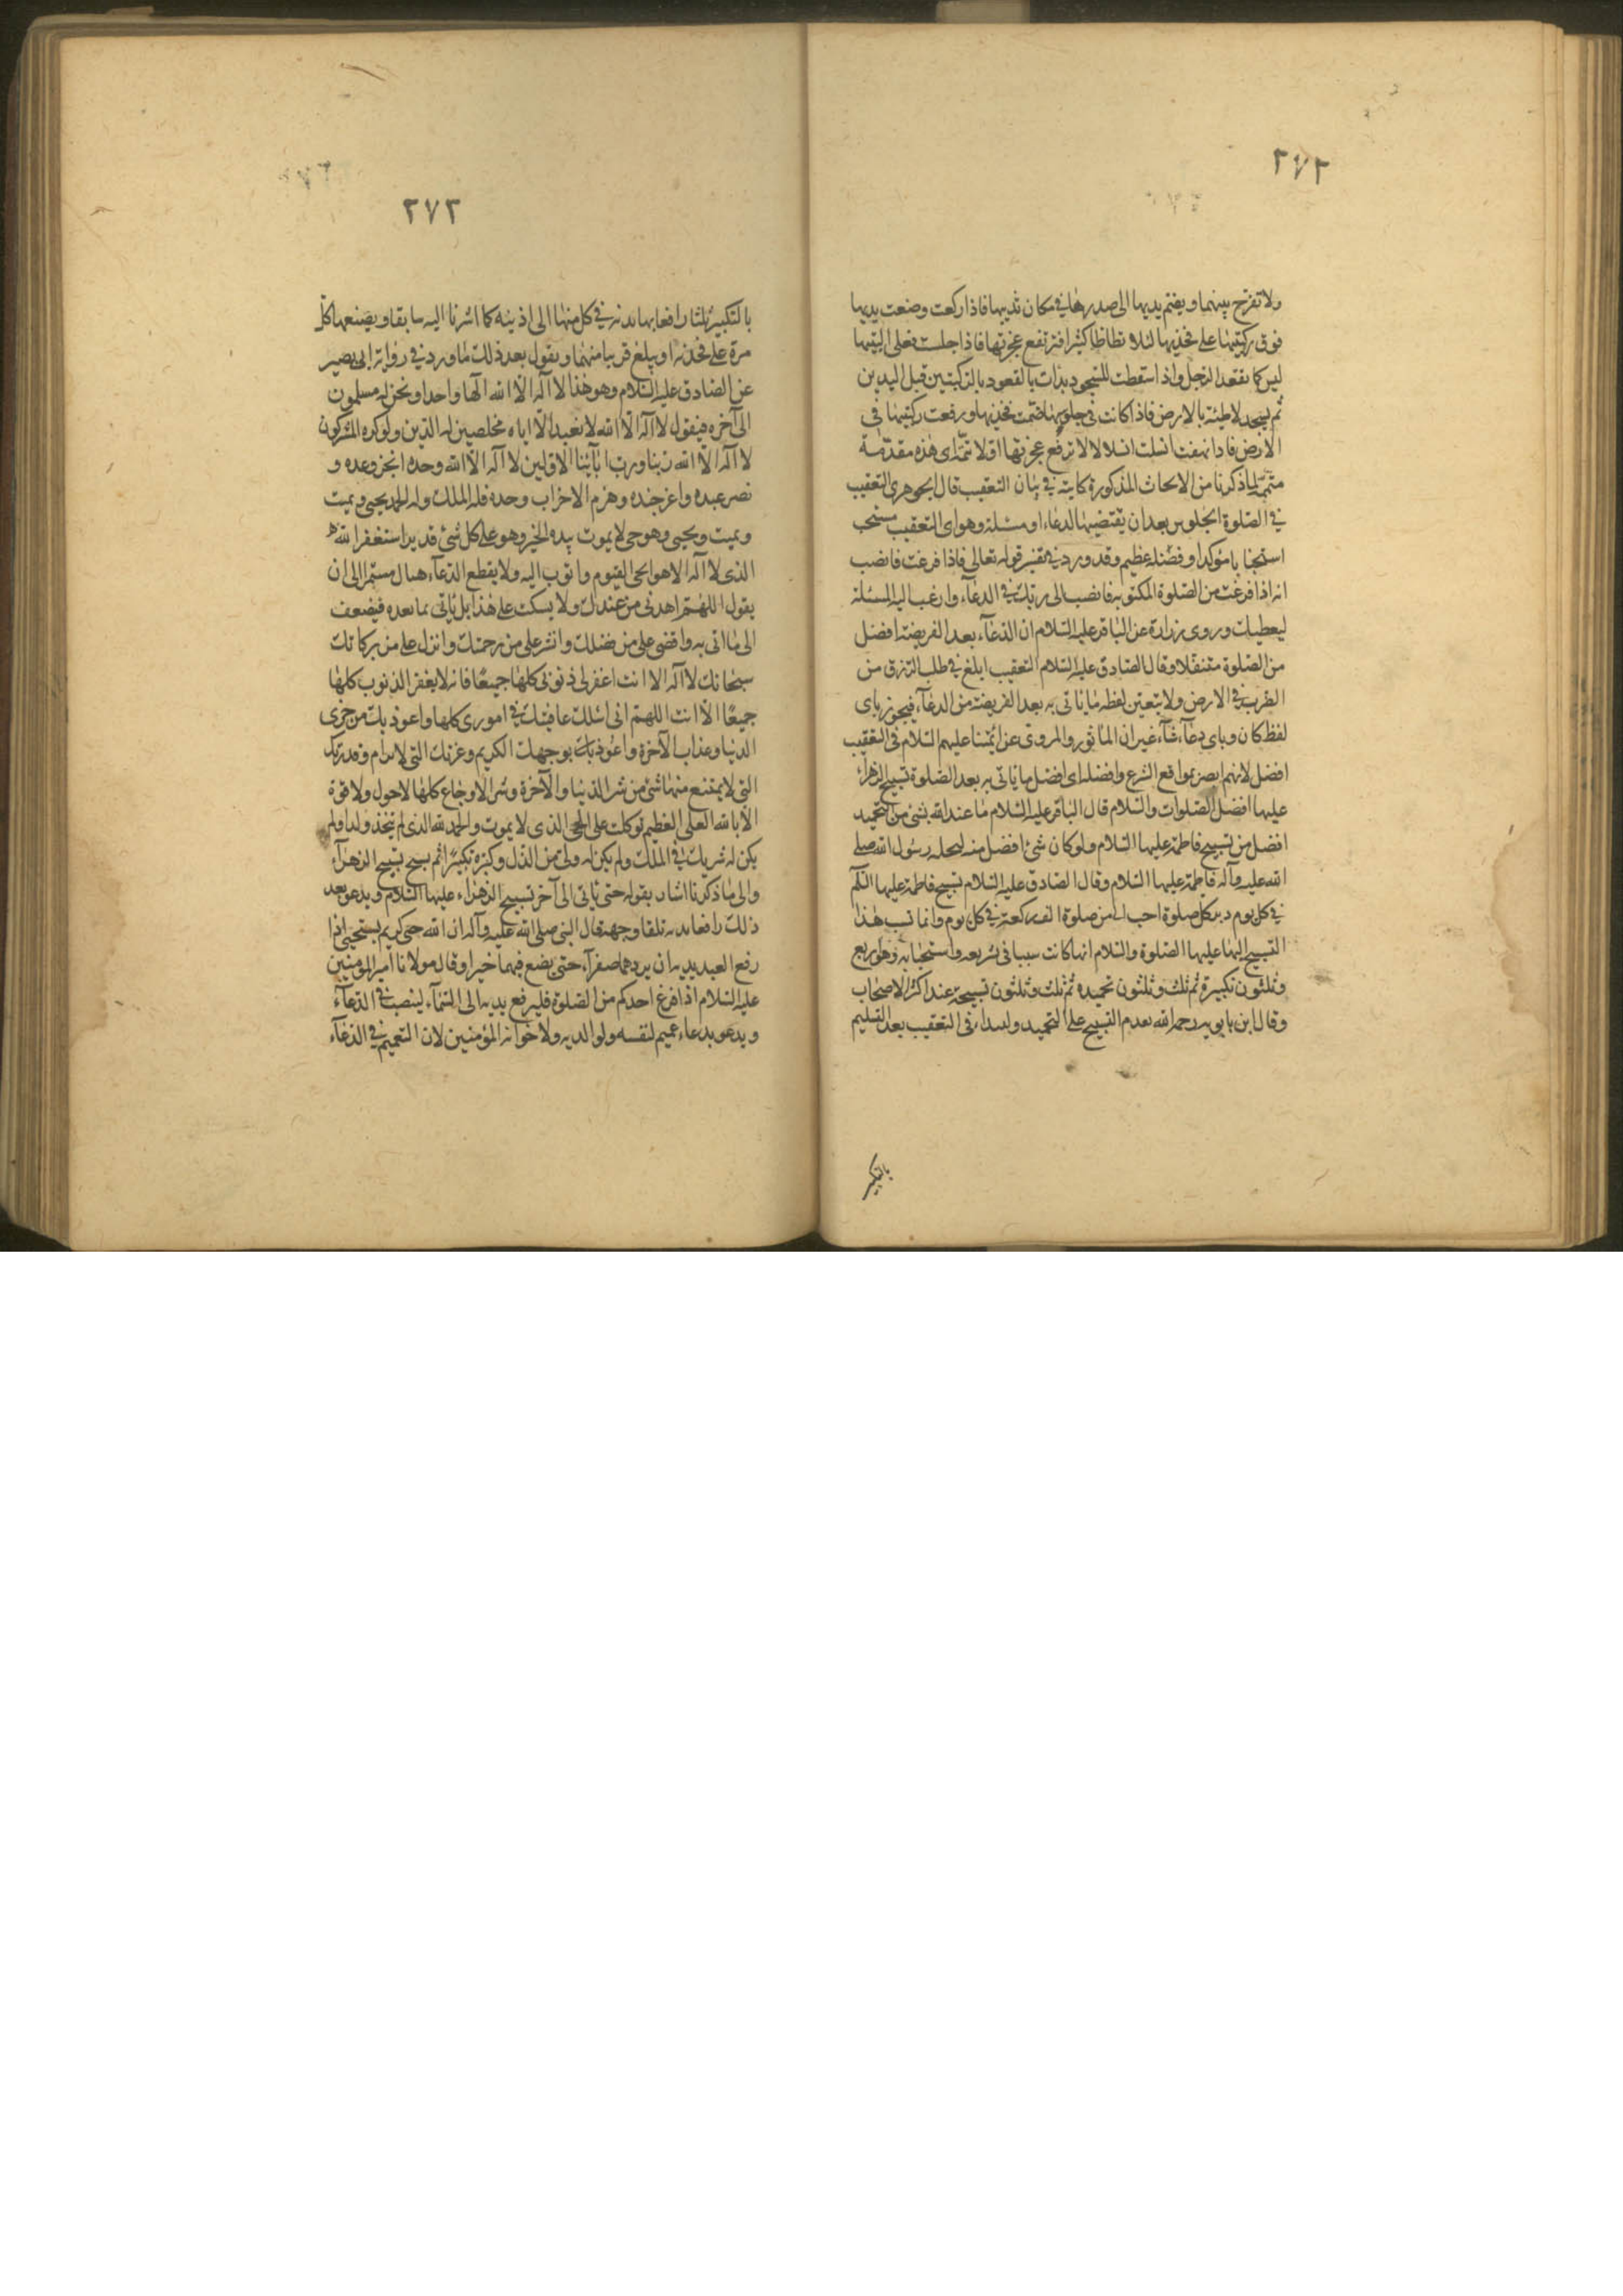 ٢٧٢
ولا تفرج بينهما ويضم يديها الى صدرها في مكان ثدييها فاذا ركعت وضعت يديها
فوق ركبتيها على فخذيها لئلا تطاطا كثيرا فترتفع عجزتها فاذا جلست فعلى اليتيها
ليس كما يقعد الرجل واذا سقطت للسجود بدات بالقعود بالركبتين قبل اليدين
ثم تسجد لاطئة بالارض فاذا كانت في جلوسها ضمت فخذيها ورفعت ركبتيها في
الارض فاذا نهضت انسلت انسلالا لا ترفع عجزتها اولا تتمة اى هذه مقدمة
متممة لما ذكرنا من الابحاث المذكورة كاينة في بيان التعقيب قال الجوهرى التعقيب
في الصلوة الجلوس بعد ان يقتضيها لدعاء او مسئلة وهو اى التعقيب مستحب
استحبابا مؤكدا وفضله عظيم وقد ورد في تفسير قوله تعالى فاذا فرغت فانصب
انه اذا فرغت من الصلوة المكتوبة فانصب الى ربك في الدعآء وارغب اليه المسئلة
ليعطيك وروى زرارة عن الباقر عليه السلام ان الدعآء بعد الفريضة افضل
من الصلوة متنفلا وقال الصادق عليه السلام التعقيب ابلغ في طلب الرزق من
الضرب في الارض ولا يتعين لفظه ما ياتى به بعد الفريضة من الدعآء فيجوز باى
لفظ كان وباى دعآء شآء غير ان الماثور والمروى عن ائمتنا عليهم السلام في التعقيب
افضل لانهم ابصر بمواقع الشرع وافضله اى افضل ما ياتى به بعد الصلوة تسبيح الزهراء
عليها افضل الصلوات والسلام قال الباقر عليه السلام ما عند الله بشئ من التحميد
افضل من تسبيح فاطمة عليها السلام ولو كان شئ افضل منه لنحله رسول الله صلى
الله عليه وآله فاطمة عليها السلام وقال الصادق عليه السلام تسبيح فاطمة عليها السلم
في كل يوم دبر كل صلوة احب الى من صلوة الف ركعة في كل يوم وانما نسب هذا
التسبيح اليها عليها الصلوة والسلام انها كانت سببا في تشريعه واستحبابه وهو اربع
وثلثون تكبيرة ثم ثلث وثلثون تحميده ثم ثلث وثلثون تسبيحة عند اكثر الاصحاب
وقال ابن بابويه رحمه الله بعدم التسبيح على التحميد وليبدا في التعقيب بعد التسليم
بالتكبير
٢٧٣
بالتكبير ثلثا رافعا بها يديه في كل منها الى اذنيه كما اشرنا اليه سابقا ويضعهما كل
مرة على فخذيه او يبلغ قريبا منهما ويقول بعد ذلك ما ورد في رواية ابى بصير
عن الصادق عليه السلام وهو هذا لا آله الا الله الها واحدا ونحن له مسلمون
الى آخره فيقول لا آله الا الله لا نعبد الا اياه مخلصين له الدين ولو كره المشركون
لا آله الا الله ربنا ورب ابآئنا الاولين لا آله الا الله وحده انجز وعده و
نصر عبده واعز جنده وهزم الاحزاب وحده فله الملك وله الحمد يحيى ويميت
ويميت ويحيى وهو حى لا يموت بيده الخير وهو على كل شئ قدير استغفر الله
الذى لا آله الا هو الحى القيوم واتوب اليه ولا يقطع الدعآء هنا بل مستمرا الى ان
يقول اللهم اهدنى من عندك ولا يسكت على هذا بل ياتى بما بعده فيضعف
الى ما اتى به وافضى على من فضلك وانشر على من رحمتك وانزل على من بركاتك
سبحانك لا آله الا انت اغفر لى ذنوبى كلها جميعا فانه لا يغفر الذنوب كلها
جميعا الا انت اللهم انى اسئلك عافيتك في امورى كلها واعوذ بك من خزى
الدنيا وعذاب الآخرة واعوذ بك بوجهك الكريم وعزتك التى لا ترام وقدرتك
التى لا يمتنع منها شئ من شر الدنيا والآخرة وشر الاوجاع كلها لا حول ولا قوة
الا بالله العلى العظيم توكلت على الحى الذى لا يموت والحمد لله الذى لم يتخذ ولدا ولم
يكن له شريك في الملك ولم يكن له ولى من الذل وكبره تكبيرا ثم يسبح تسبيح الزهراء
والى ما ذكرنا اشار بقوله حتى ياتى الى آخر تسبيح الزهراء عليها السلام ويدعو بعد
ذلك رافعا يديه تلقا وجهه قال النبى صلى الله عليه وآله ان الله حى كريم يستحيى اذا
رفع العبد يديه ان يردهما صفرآء حتى يضع فيهما خيرا وقال مولانا امير المؤمنين
عليه السلام اذا فرغ احدكم من الصلوة فليرفع يديه الى السمآء لينصب في الدعآء
ويدعو بدعاء عميم لنفسه ولوالديه ولاخوانه المؤمنين لان التعميم في الدعآء